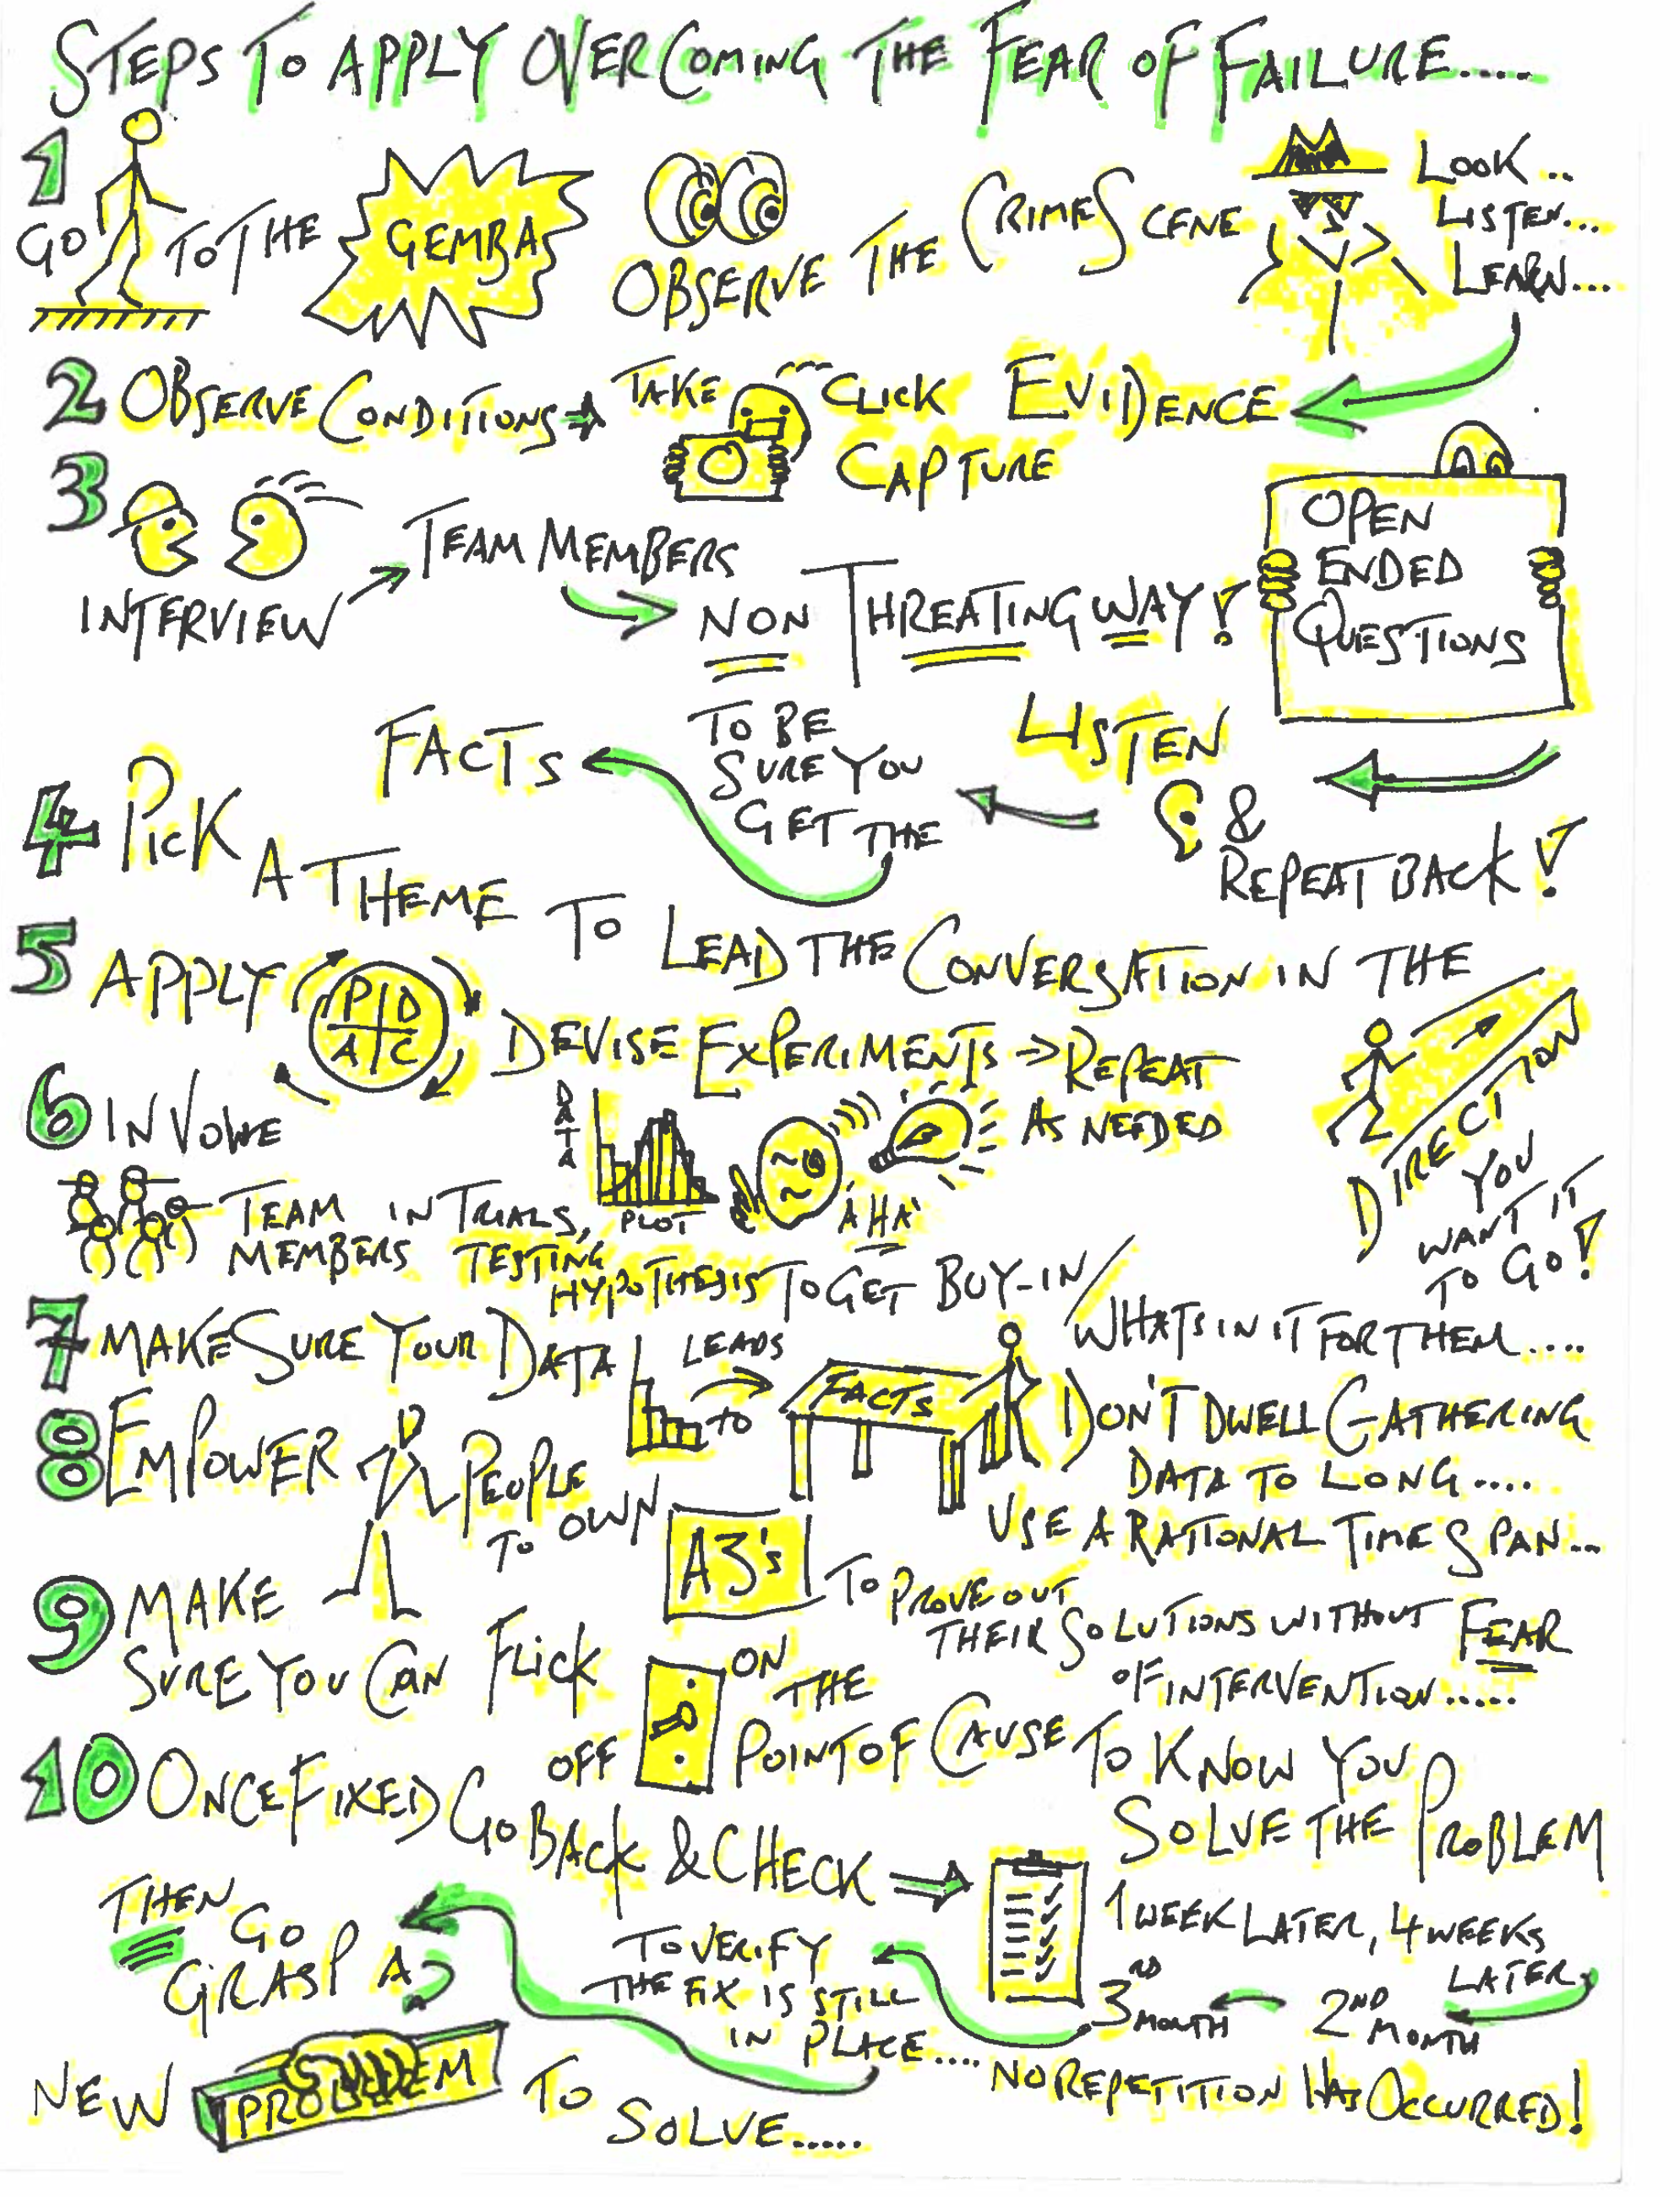 STEPS TO APPLY OVERCOMING THE FEAR OF FAILURE.....
1 GO TO THE GEMBA OBSERVE THE CRIME SCENE LOOK..
LISTEN...
LEARN....
2 OBSERVE CONDITIONS → TAKE CLICK EVIDENCE
CAPTURE
3 INTERVIEW → TEAM MEMBERS
NON THREATING WAY!
OPEN
ENDED
QUESTIONS
LISTEN
&
REPEAT BACK!
TO BE
SURE YOU
GET THE
FACTS
4 PICK A THEME TO LEAD THE CONVERSATION IN THE
DIRECTION
YOU
WANT IT
TO GO!
5 APPLY P D
A C
DEVISE EXPERIMENTS → REPEAT
AS NEEDED
DATA
PLOT
AHA'
6 INVOLVE
TEAM IN TRIALS,
MEMBERS TESTING
HYPOTHESIS TO GET BUY-IN/
WHATS IN IT FOR THEM....
7 MAKE SURE YOUR DATA LEADS
TO
FACTS
DON'T DWELL GATHERING
DATA TO LONG....
USE A RATIONAL TIME SPAN...
8 EMPOWER PEOPLE
TO OWN
A3's
TO PROVE OUT
THEIR SOLUTIONS WITHOUT FEAR
OF INTERVENTION.....
9 MAKE
SURE YOU CAN FLICK
ON
OFF
THE
POINT OF CAUSE TO KNOW YOU
SOLVE THE PROBLEM
10 ONCE FIXED GO BACK & CHECK ⇒
1 WEEK LATER, 4 WEEKS
LATER,
2ND
MONTH
3RD
MONTH
TO VERIFY
THE FIX IS STILL
IN PLACE.... NO REPETITION HAS OCCURRED!
THEN GO
GRASP A
NEW PROBLEM TO
SOLVE.....